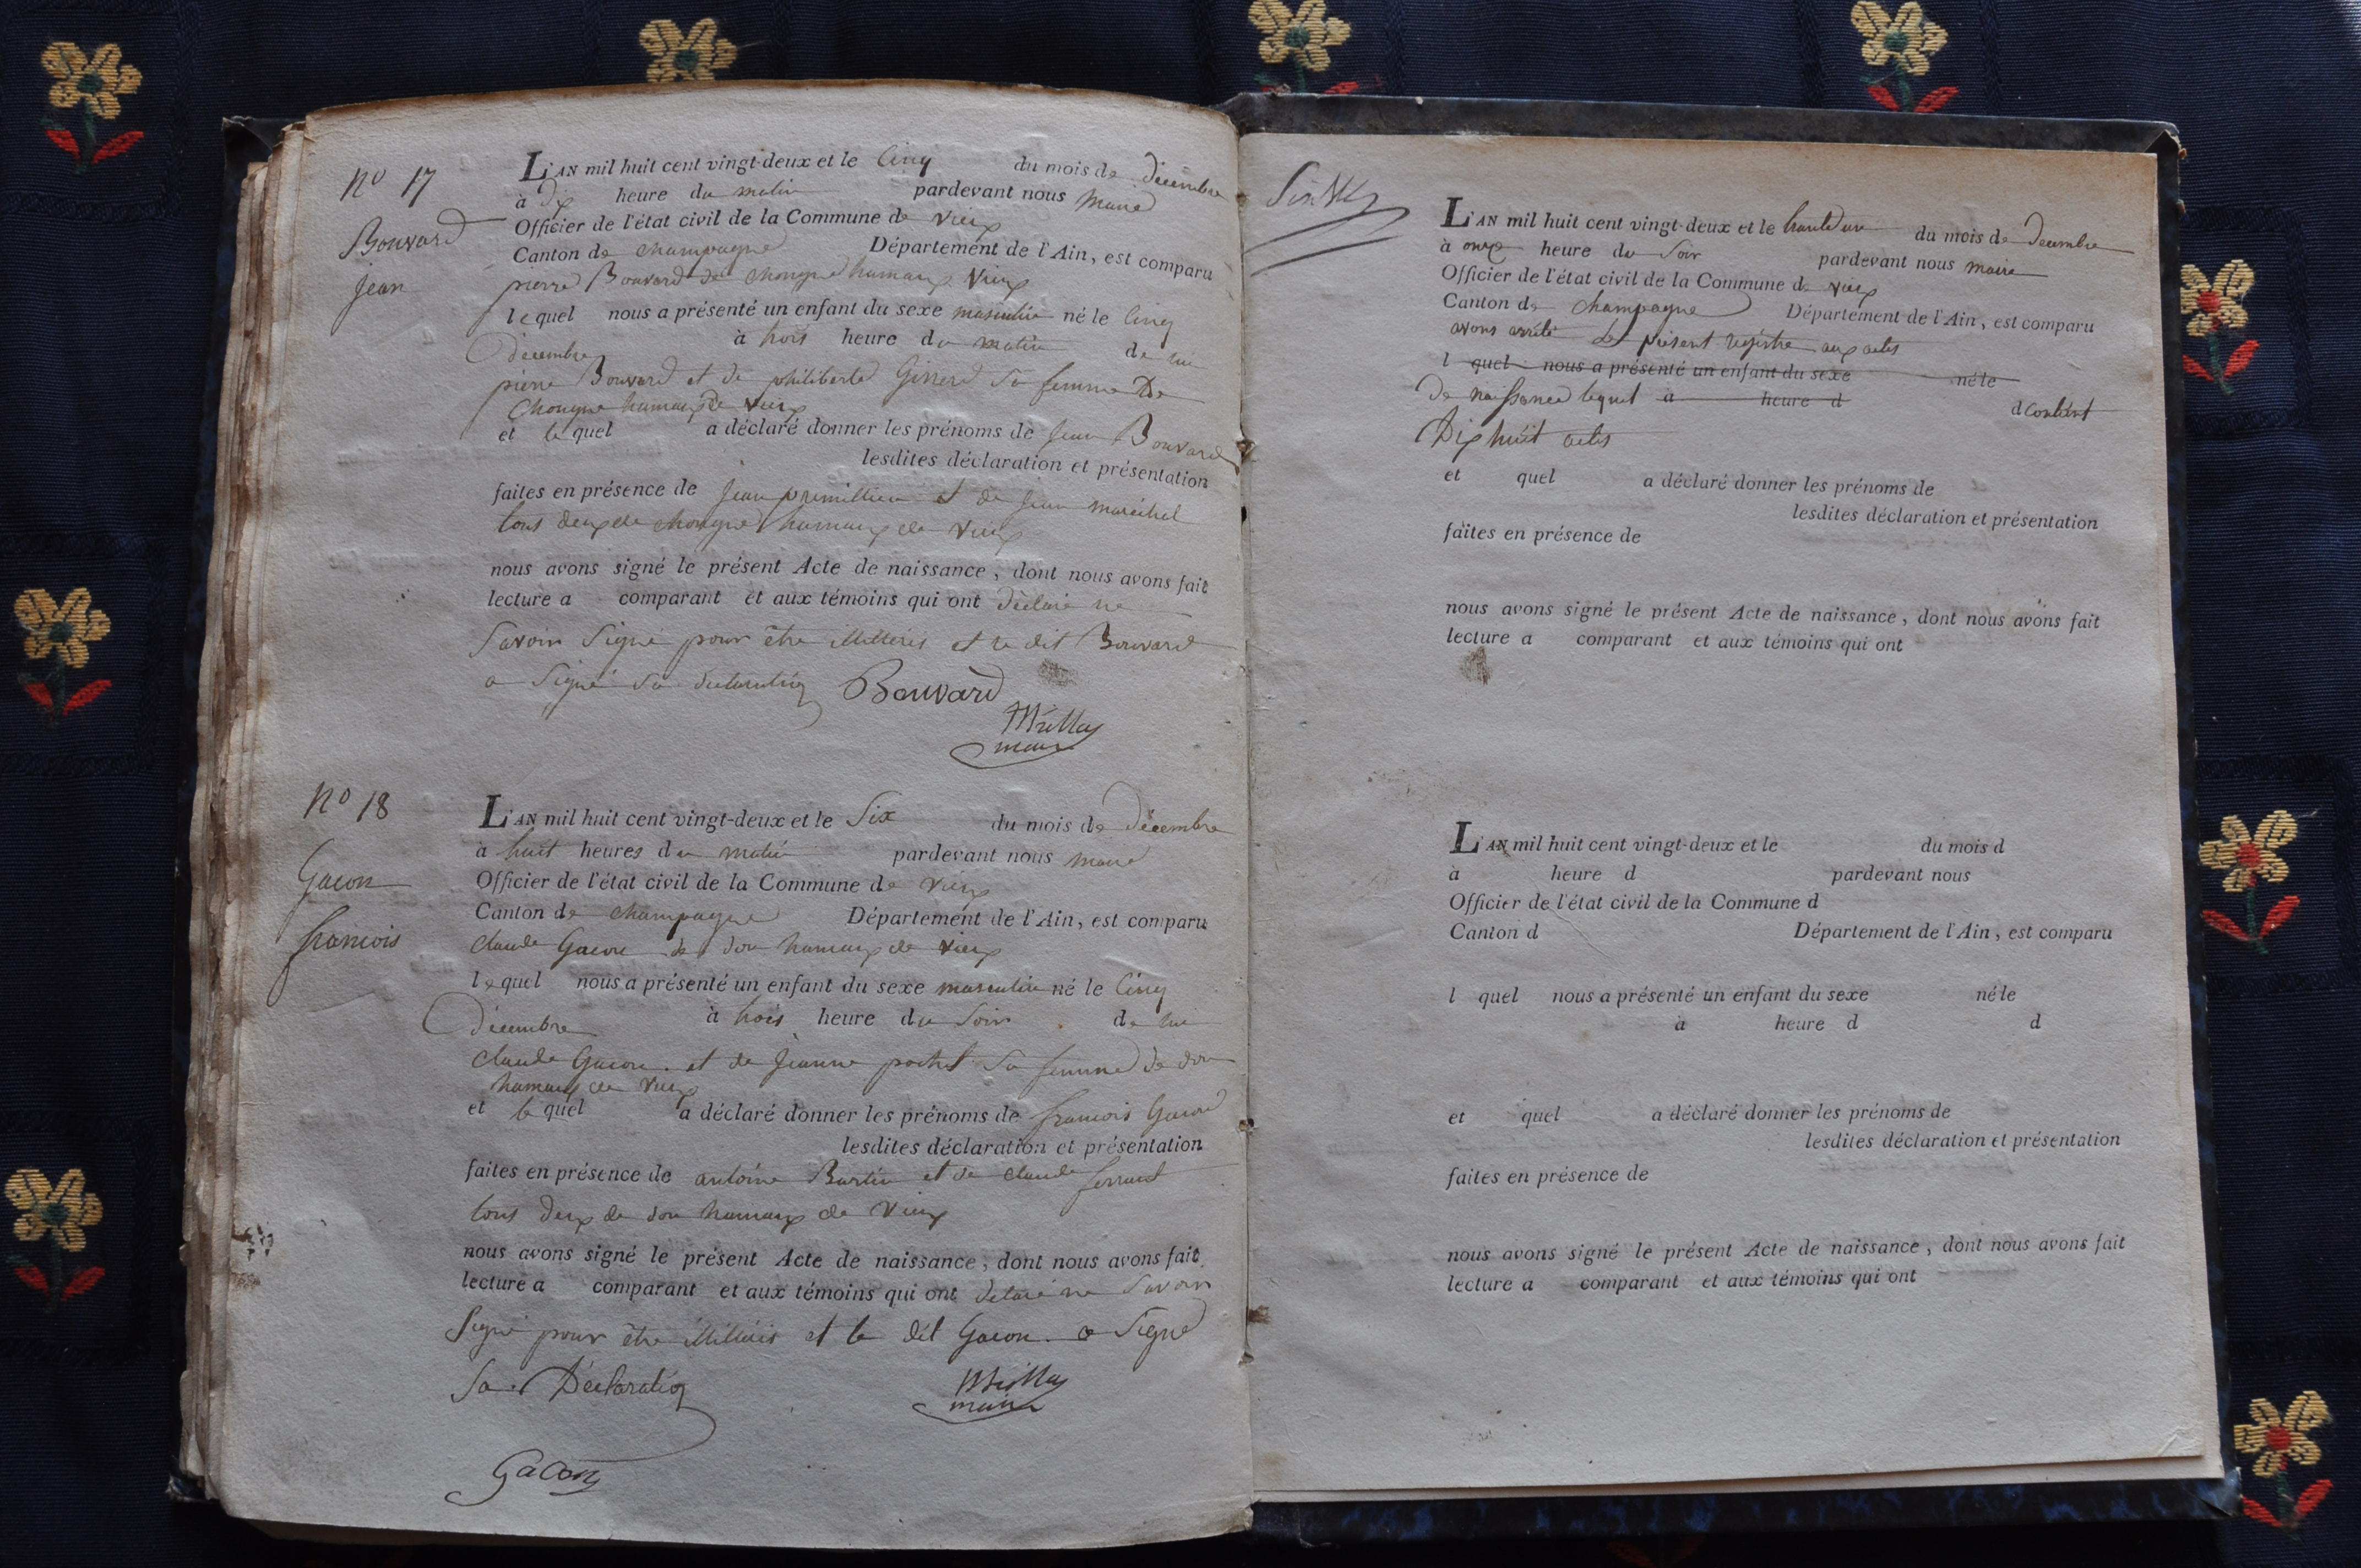 No 17
Bouvard
Jean
L'AN mil huit cent vingt-deux et le Cinq du mois de décembre
à dix heure du matin pardevant nous maire
Officier de l'état civil de la Commune de vieux
Canton de champagne Département de l'Ain, est comparu
pierre Bouvard de chongne hameaux vieux
lequel nous a présenté un enfant du sexe masculin né le Cinq
décembre à trois heure du matin de lui
pierre Bouvard et de philiberte sa femme De
Chongne hameaux de vieux
et le quel a déclaré donner les prénoms de jean Bouvard
lesdites déclaration et présentation
faites en présence de jean et de jean maréchal
tous deux de chongne hameaux de vieux
nous avons signé le présent Acte de naissance, dont nous avons fait
lecture a comparant et aux témoins qui ont déclaré ne
Savoir Signé pour être illitérés et le dit Bouvard
a Signé Sa déclaration Bouvard
maire
No 18
Gacon
francois
L'AN mil huit cent vingt-deux et le Six du mois de décembre
à huit heures du matin pardevant nous maire
Officier de l'état civil de la Commune de vieux
Canton de champagne Département de l'Ain, est comparu
claude Gacon de don hameaux de vieux
lequel nous a présenté un enfant du sexe masculin né le Cinq
décembre à trois heure du Soir de lui
claude Gacon et de jeanne pochet Sa femme de don
hameaux de vieux
et le quel a déclaré donner les prénoms de francois Gacon
lesdites déclaration et présentation
faites en présence de antoine et de claude ferrand
tous deux de don hameaux de vieux
nous avons signé le présent Acte de naissance, dont nous avons fait
lecture a comparant et aux témoins qui ont déclaré ne Savoir
Signé pour être et le dit Gacon a Signé
Sa Déclaration
maire
Gacon
L'AN mil huit cent vingt-deux et le trente un du mois de Decembre
à onze heure du Soir pardevant nous maire
Officier de l'état civil de la Commune de vieux
Canton de champagne Département de l'Ain, est comparu
avons arrêté le présent registre aux actes
l quel nous a présenté un enfant du sexe né le
de naissance lequel à heure d d contient
Dix huit actes
et quel a déclaré donner les prénoms de
lesdites déclaration et présentation
faites en présence de
nous avons signé le présent Acte de naissance, dont nous avons fait
lecture a comparant et aux témoins qui ont
L'AN mil huit cent vingt-deux et le du mois d
à heure d pardevant nous
Officier de l'état civil de la Commune d
Canton d Département de l'Ain, est comparu
l quel nous a présenté un enfant du sexe né le
à heure d d
et quel a déclaré donner les prénoms de
lesdites déclaration et présentation
faites en présence de
nous avons signé le présent Acte de naissance, dont nous avons fait
lecture a comparant et aux témoins qui ont